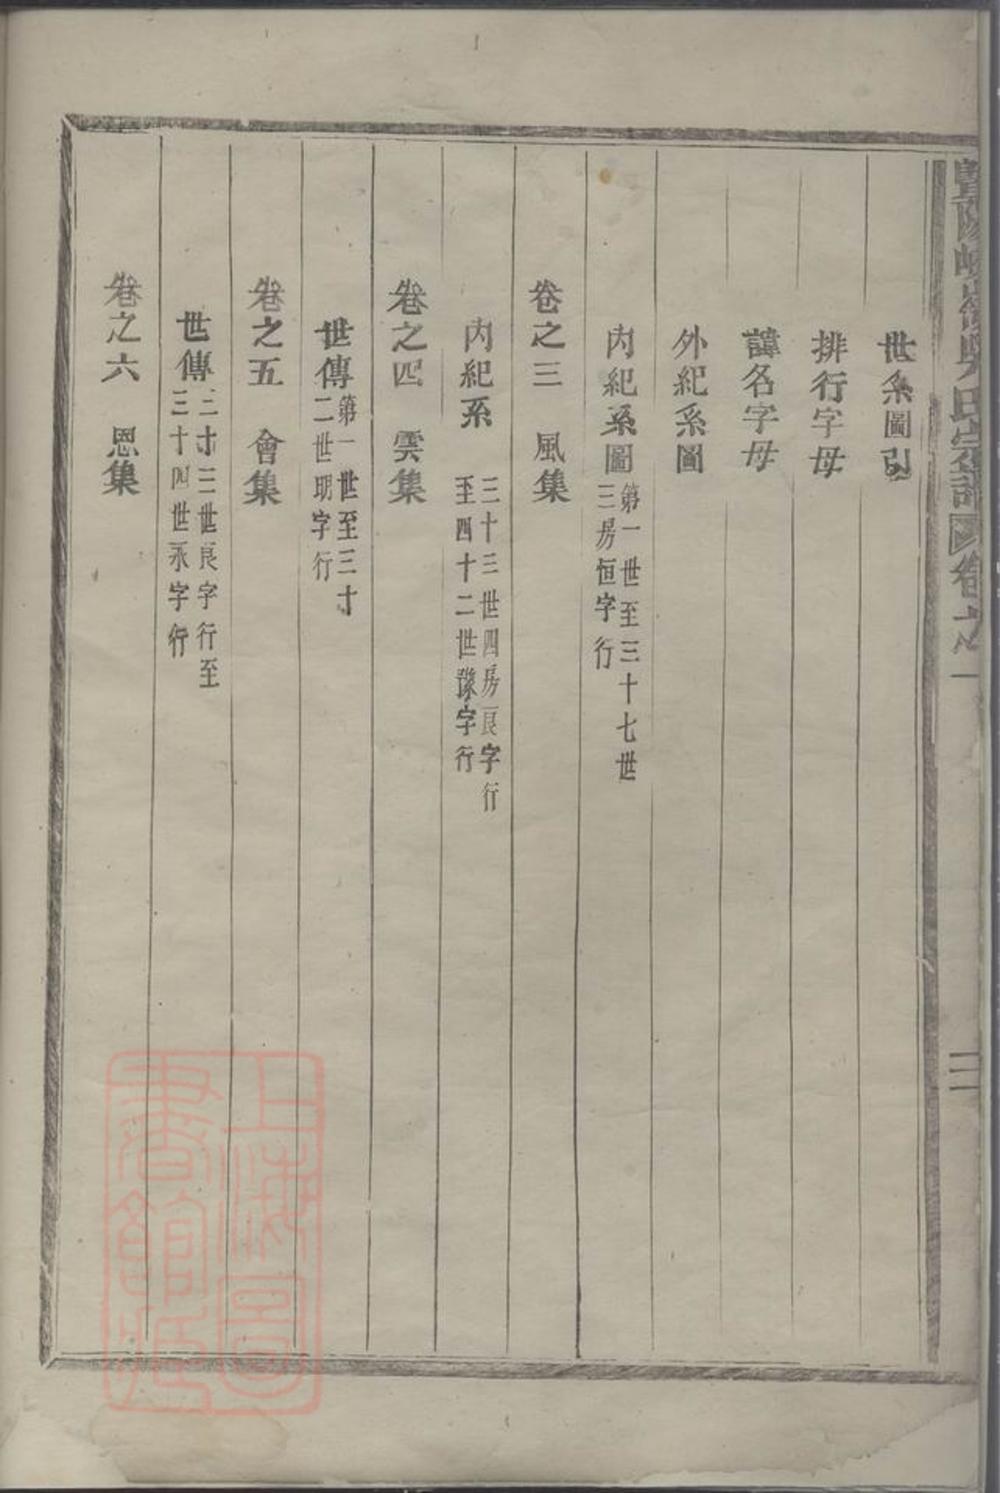 世系圖引
排行字母
諱名字母
外紀系圖
內紀系圖第一世至三十七世
三房恒字行
卷之三　風集
內紀系　三十三世四房良字行
至四十二世豫字行
卷之四　雲集
世傳第一世至三十
二世明字行
卷之五　會集
世傳三十三世良字行至
三十四世承字行
卷之六　恩集
上海圖
書館藏